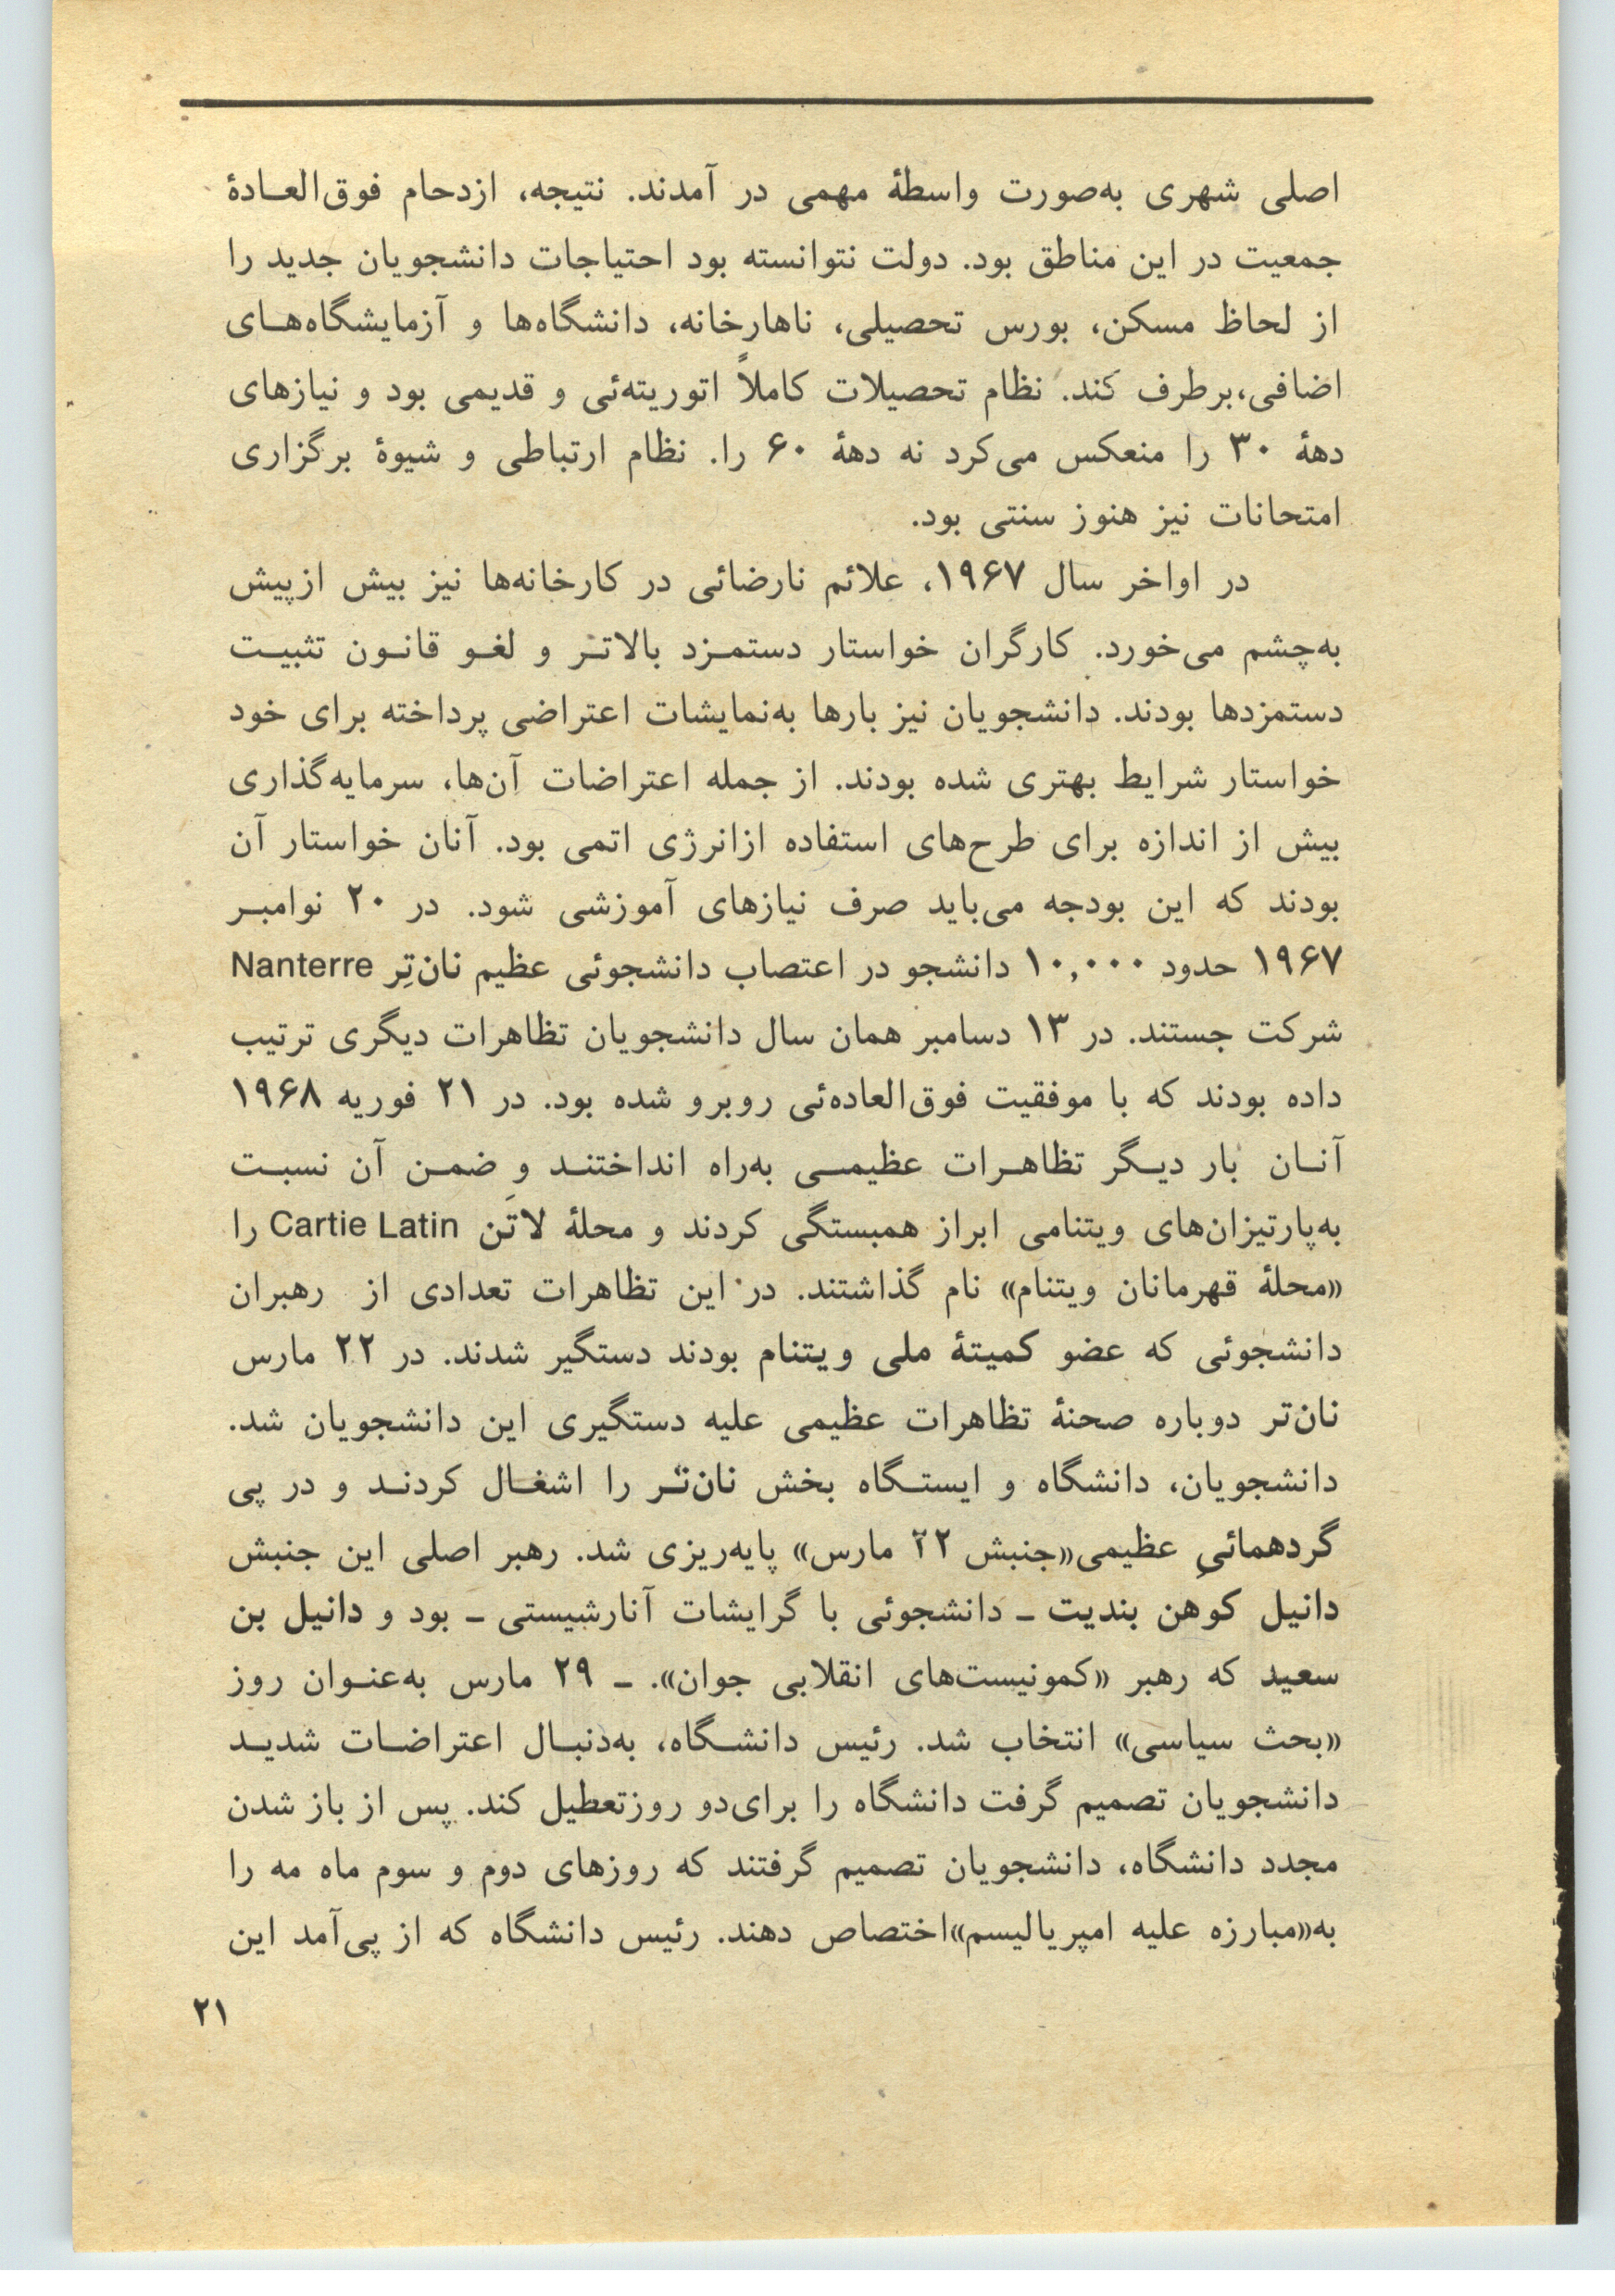 اصلی شهری به‌صورت واسطهٔ مهمی در آمدند. نتیجه، ازدحام فوق‌العـادهٔ
جمعیت در این مناطق بود. دولت نتوانسته بود احتیاجات دانشجویان جدید را
از لحاظ مسکن، بورس تحصیلی، ناهارخانه، دانشگاه‌ها و آزمایشگاه‌هـای
اضافی،برطرف کند. نظام تحصیلات کاملاً اتوریته‌ئی و قدیمی بود و نیازهای
دههٔ ۳۰ را منعکس می‌کرد نه دههٔ ۶۰ را. نظام ارتباطی و شیوهٔ برگزاری
امتحانات نیز هنوز سنتی بود.
در اواخر سال ۱۹۶۷، علائم نارضائی در کارخانه‌ها نیز بیش ازپیش
به‌چشم می‌خورد. کارگران خواستار دستمـزد بالاتـر و لغـو قانـون تثبیـت
دستمزدها بودند. دانشجویان نیز بارها به‌نمایشات اعتراضی پرداخته برای خود
خواستار شرایط بهتری شده بودند. از جمله اعتراضات آن‌ها، سرمایه‌گذاری
بیش از اندازه برای طرح‌های استفاده ازانرژی اتمی بود. آنان خواستار آن
بودند که این بودجه می‌باید صرف نیازهای آموزشی شود. در ۲۰ نوامبـر
۱۹۶۷ حدود ۱۰,۰۰۰ دانشجو در اعتصاب دانشجوئی عظیم نان‌تِر Nanterre
شرکت جستند. در ۱۳ دسامبر همان سال دانشجویان تظاهرات دیگری ترتیب
داده بودند که با موفقیت فوق‌العاده‌ئی روبرو شده بود. در ۲۱ فوریه ۱۹۶۸
آنـان بار دیـگر تظاهـرات عظیمـی به‌راه انداختنـد و ضمـن آن نسبـت
به‌پارتیزان‌های ویتنامی ابراز همبستگی کردند و محلهٔ لاتَن Cartie Latin را
«محلهٔ قهرمانان ویتنام» نام گذاشتند. در این تظاهرات تعدادی از رهبران
دانشجوئی که عضو کمیتهٔ ملی ویتنام بودند دستگیر شدند. در ۲۲ مارس
نان‌تر دوباره صحنهٔ تظاهرات عظیمی علیه دستگیری این دانشجویان شد.
دانشجویان، دانشگاه و ایستـگاه بخش نان‌تـر را اشغـال کردنـد و در پی
گردهمائیِ عظیمی«جنبش ۲۲ مارس» پایه‌ریزی شد. رهبر اصلی این جنبش
دانیل کوهن بندیت ـ دانشجوئی با گرایشات آنارشیستی ـ بود و دانیل بن
سعید که رهبر «کمونیست‌های انقلابی جوان». ـ ۲۹ مارس به‌عنـوان روز
«بحث سیاسی» انتخاب شد. رئیس دانشـگاه، به‌دنبـال اعتراضـات شدیـد
دانشجویان تصمیم گرفت دانشگاه را برای‌دو روزتعطیل کند. پس از باز شدن
مجدد دانشگاه، دانشجویان تصمیم گرفتند که روزهای دوم و سوم ماه مه را
به«مبارزه علیه امپریالیسم»اختصاص دهند. رئیس دانشگاه که از پی‌آمد این
۲۱